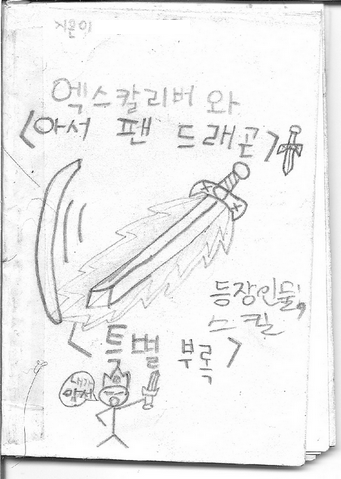 지은이
엑스칼리버와
<아서 팬 드래곤>
등장인물,
스킬
<특별 부록>
내가
아서